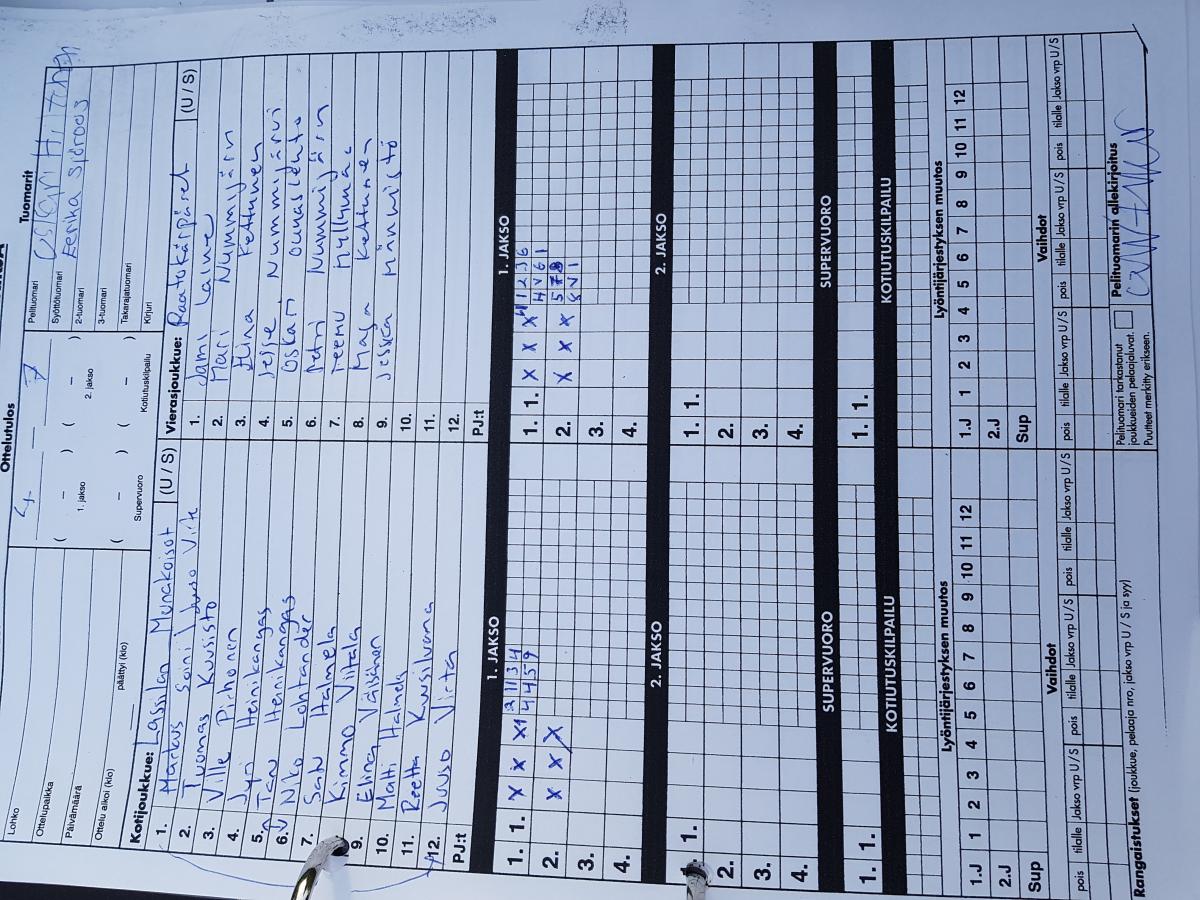 Ottelutulos
Tuomarit
Lohko
Ottelupaikka
Päivämäärä
Ottelu alkoi (klo)
päättyi (klo)
4 — 7
( – ) ( – )
1. jakso
2. jakso
( – ) ( – )
Supervuoro
Kotiutuskilpailu
Pelituomari
Syöttötuomari
2-tuomari Eerika Sjöroos
3-tuomari
Takarajatuomari
Kirjuri
Kotijoukkue: Lassilan Munakoisot (U / S)
1. Markus Soini / Juuso Virt
2. Tuomas Kuusisto
3. Ville Pihonen
4. Jyri Heinikangas
5. Tan Heinikangas
6. Niko Lohtander
7. Satu Halmela
8. Kimmo Viitala
9. Elina Väisänen
10. Matti Halmela
11. Reetta Kuusiluoma
12. Juuso Virta
PJ:t
Vierasjoukkue: Raatokärpäset (U / S)
1. Jami Laine
2. Mari Nummijärvi
3. Elina Kettunen
4. Jesse Nummijärvi
5. Oskari Ounaslehto
6. Petri Nummijärvi
7. Teemu Myllymac
8. Maja Kettunen
9. Jessica Männistö
10.
11.
12.
PJ:t
1. JAKSO
1. JAKSO
1. 1. X X X
2. X X X
3.
4.
1. 1. X X X
2. X X X
3.
4.
2. JAKSO
2. JAKSO
1. 1.
2.
3.
4.
1. 1.
2.
3.
4.
SUPERVUORO
SUPERVUORO
1. 1.
1. 1.
KOTIUTUSKILPAILU
KOTIUTUSKILPAILU
Lyöntijärjestyksen muutos
Lyöntijärjestyksen muutos
1.J 1 2 3 4 5 6 7 8 9 10 11 12
2.J
Sup
1.J 1 2 3 4 5 6 7 8 9 10 11 12
2.J
Sup
Vaihdot
Vaihdot
pois tilalle Jakso vrp U / S pois tilalle Jakso vrp U / S pois tilalle Jakso vrp U / S
pois tilalle Jakso vrp U / S pois tilalle Jakso vrp U / S pois tilalle Jakso vrp U / S
Rangaistukset (joukkue, pelaaja nro, jakso vrp U / S ja syy)
Pelituomari tarkastanut
joukkueiden pelaajaluvat.
Puutteet merkitty erikseen.
Pelituomarin allekirjoitus